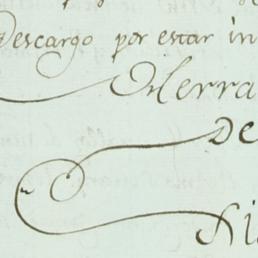 Descargo por estar in
Herra
De